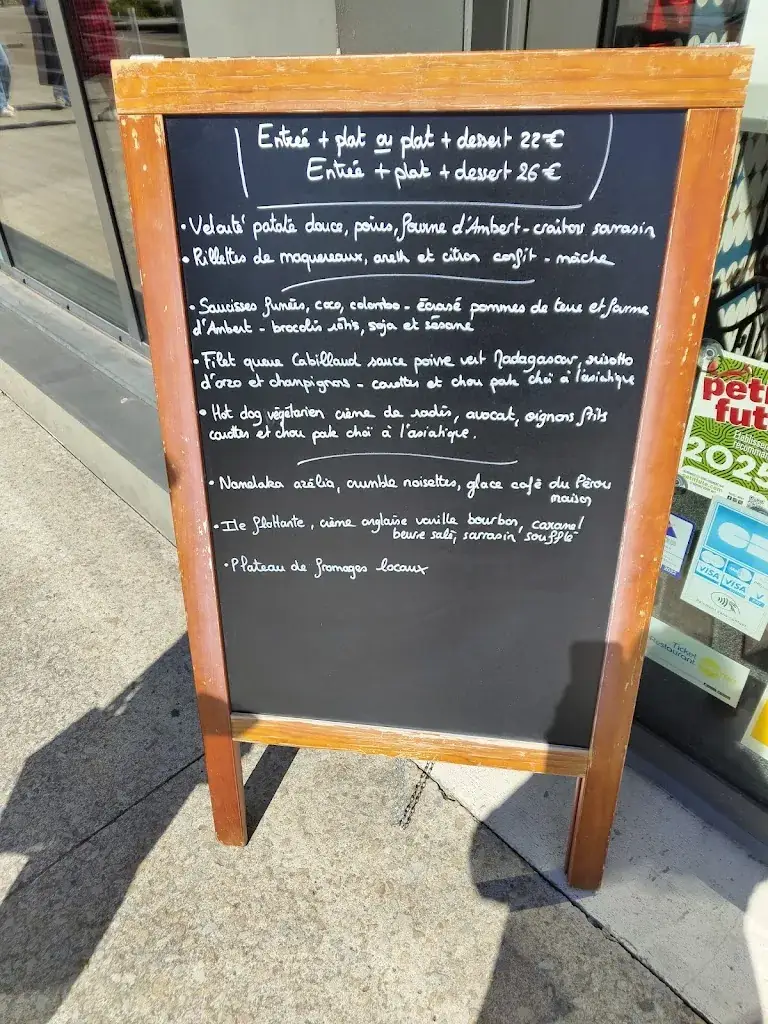 Entrée + plat ou plat + dessert 22€
Entrée + plat + dessert 26€
• Velouté patate douce, poires, fourme d'Ambert - croûtons sarrasin
• Rillettes de maquereaux, aneth et citron confit - mâche
• Saucisses fumées, coco, colombo - écrasé pommes de terre et fourme
d'Ambert - brocolis rôtis, soja et sésame
• Filet queue Cabillaud sauce poivre vert Madagascar, risotto
d'orzo et champignons - carottes et chou pak choï à l'asiatique
• Hot dog végétarien crème de radis, avocat, oignons frits
carottes et chou pak choï à l'asiatique.
• Namelaka azélia, crumble noisettes, glace café du Pérou
maison
• Ile flottante, crème anglaise vanille bourbon, caramel
beurre salé, sarrasin soufflé
• Plateau de fromages locaux
peti
fut
2025
VISA
VISA
V
Ticket
Restaurant